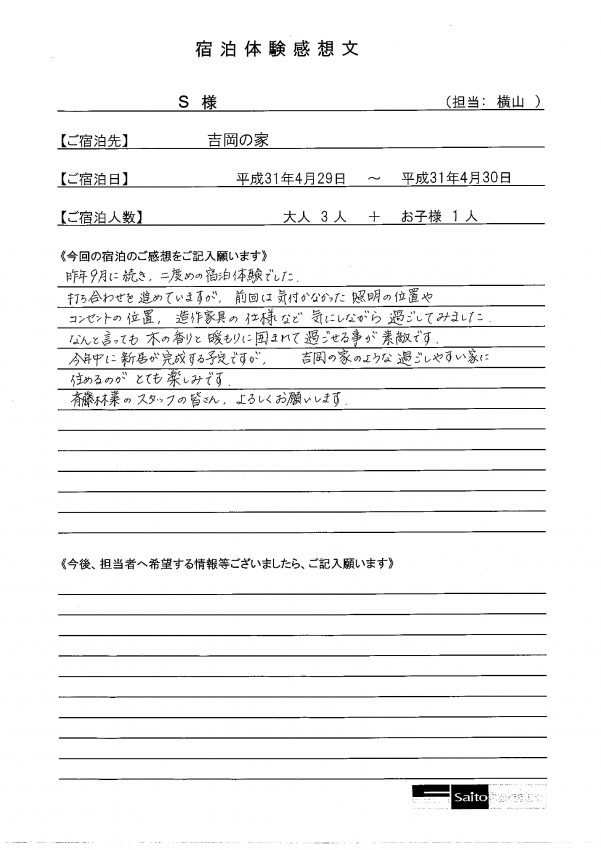 宿泊体験感想文
S 様 （担当： 横山 ）
【ご宿泊先】 吉岡の家
【ご宿泊日】 平成31年4月29日 ～ 平成31年4月30日
【ご宿泊人数】 大人 3人 ＋ お子様 1人
《今回の宿泊のご感想をご記入願います》
昨年9月に続き、二度めの宿泊体験でした。
打ち合わせを進めていますが、前回は気付かなかった照明の位置や
コンセントの位置、造作家具の仕様など気にしながら過ごしてみました。
なんと言っても木の香りと暖もりに囲まれて過ごせる事が素敵です。
今年中に新居が完成する予定ですが、 吉岡の家のような過ごしやすい家に
住めるのがとても楽しみです。
斉藤林業のスタッフの皆さん、よろしくお願いします。
《今後、担当者へ希望する情報等ございましたら、ご記入願います》
Saito